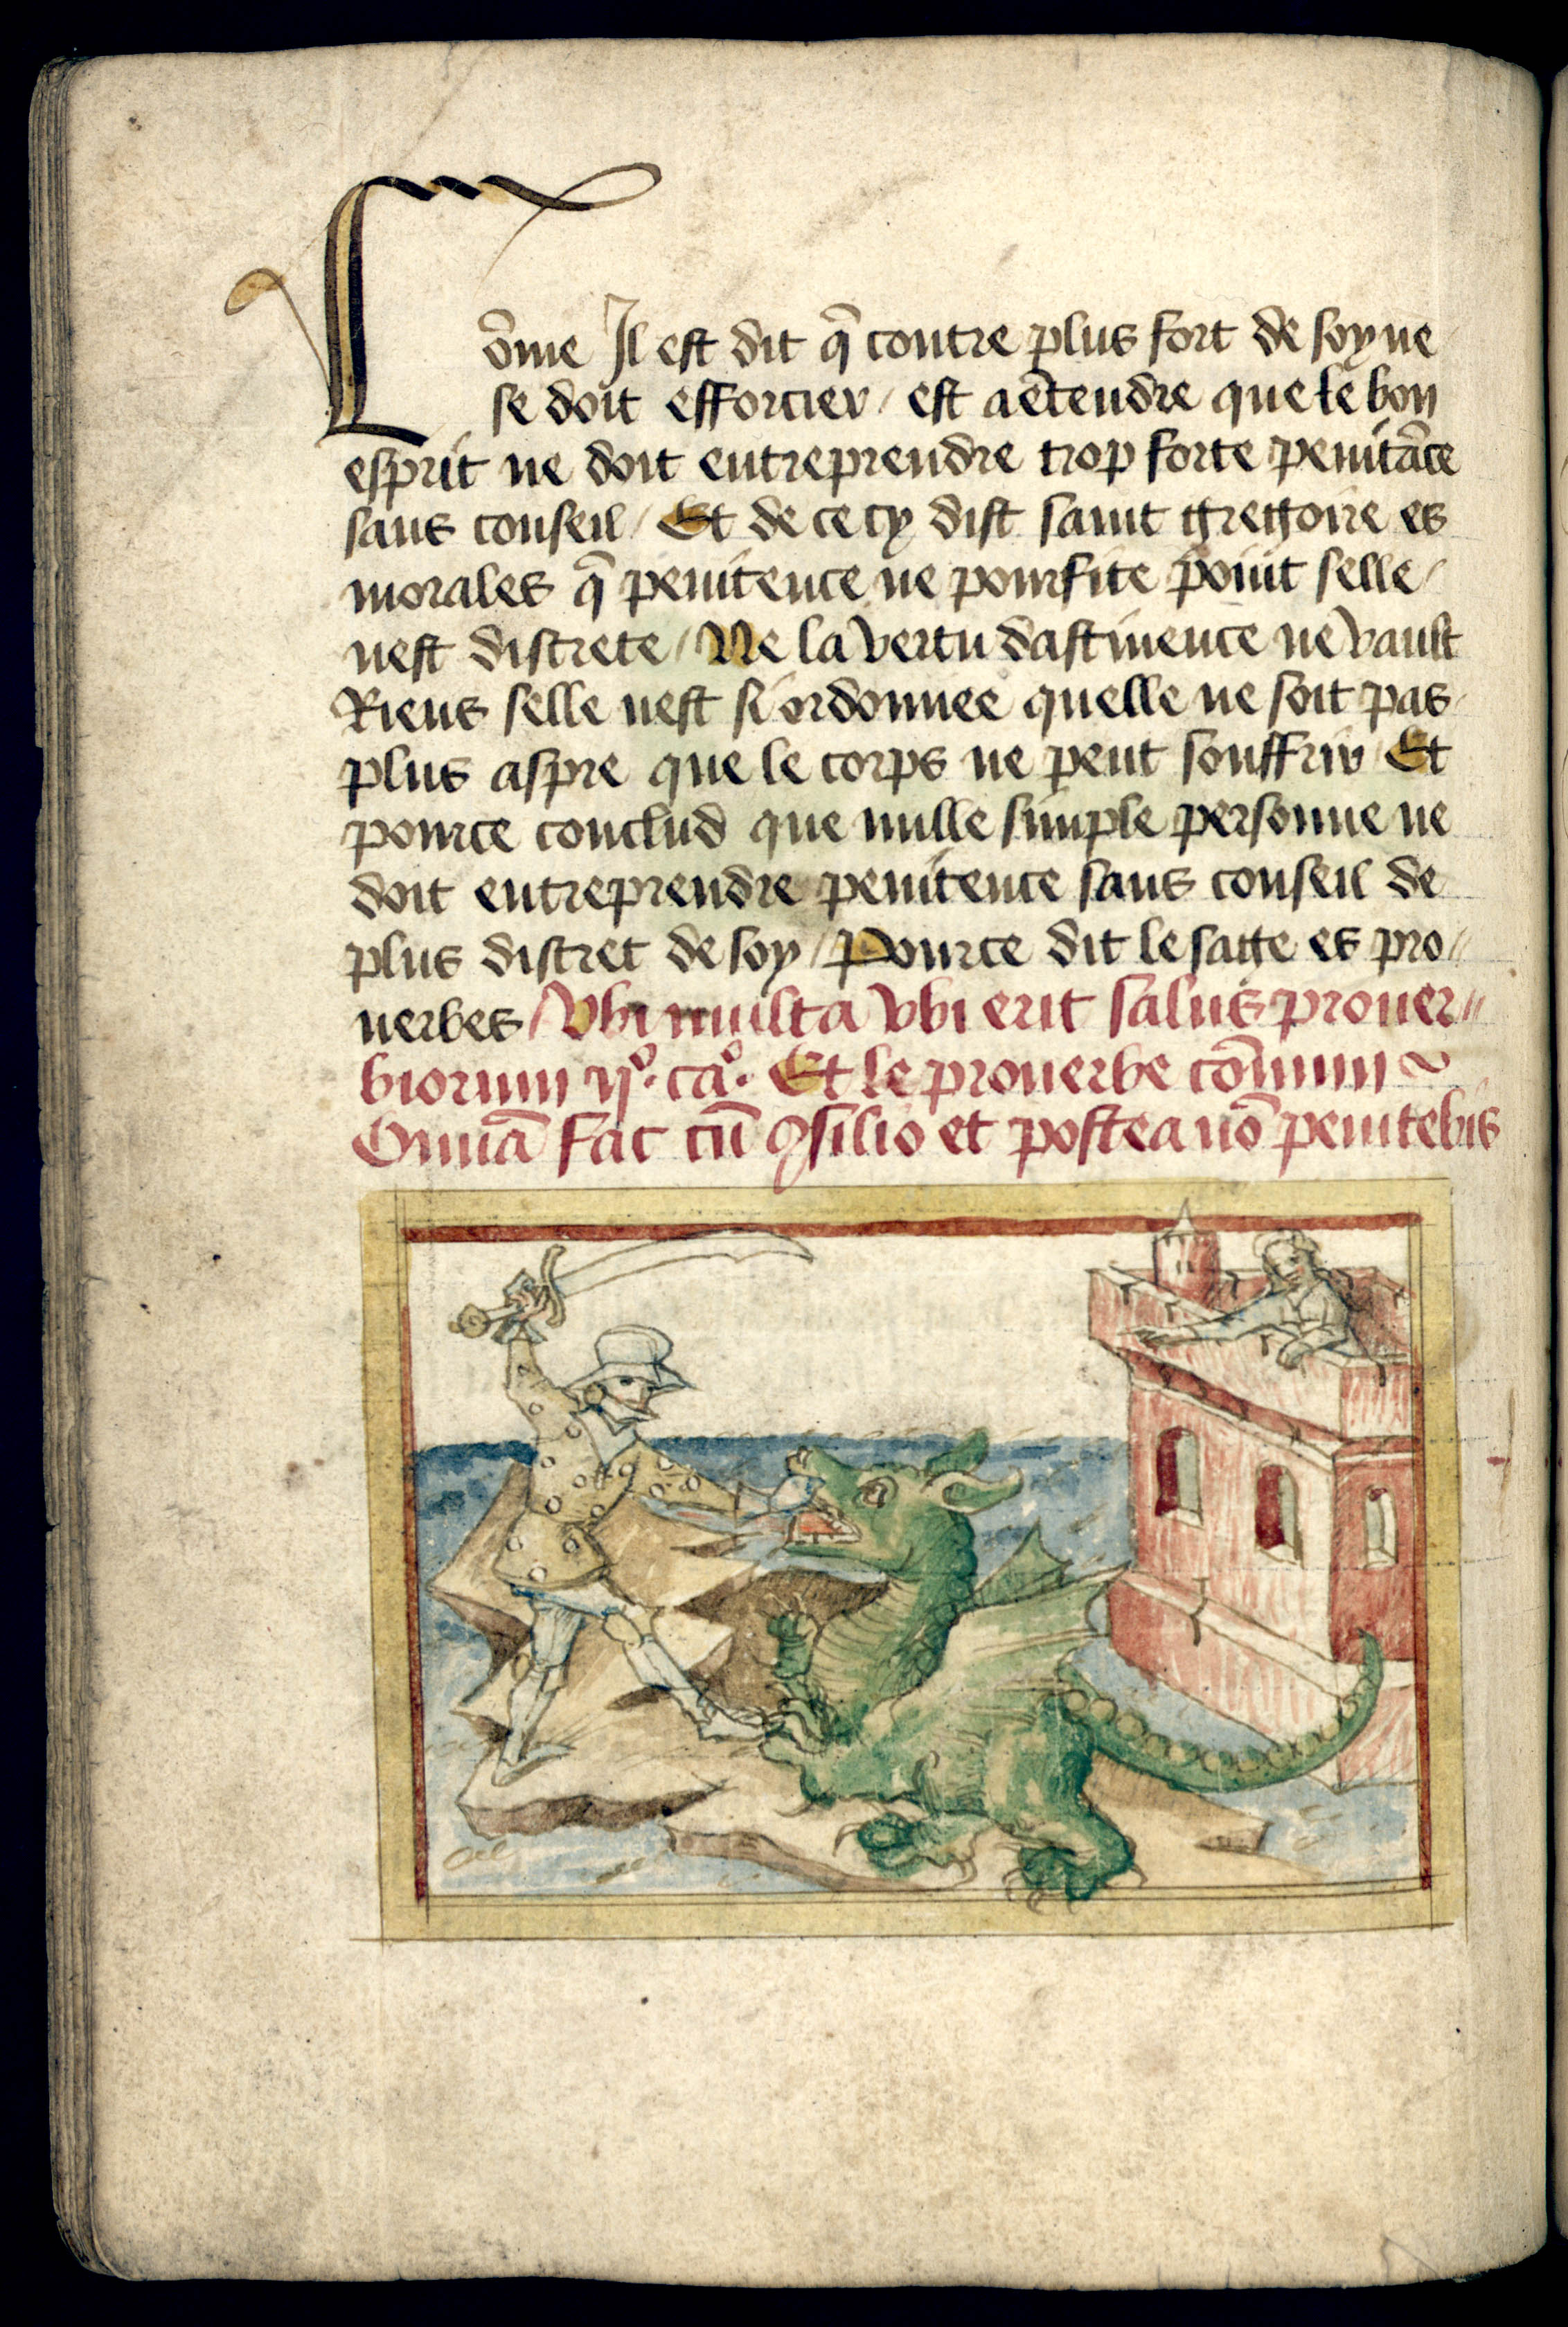 Cõme Il est dit q̃ contre plus fort de soy ne
se doit efforcier / est aẽtendre que le bon
esprit ne doit entreprendre trop forte penitãce
sans conseil / Et de cecy dist saint gregoire es
morales q̃ penitence ne pourfite point selle /
nest discrete / Ne la vertu dastinence ne vault
Riens selle nest si ordonnee quelle ne soit pas
plus aspre que le corps ne peut souffrir Et
pource conclud que nulle simple personne ne
doit entreprendre penitence sans conseil de
plus discret de soy / Pource dit le sage es pro//
uerbes / Vbi multa vbi erit salus prouer//
biorum ijº. caº. Et le prouerbe cõmun
Omiã fac cũ ꝯsilio et postea nõ penitebis